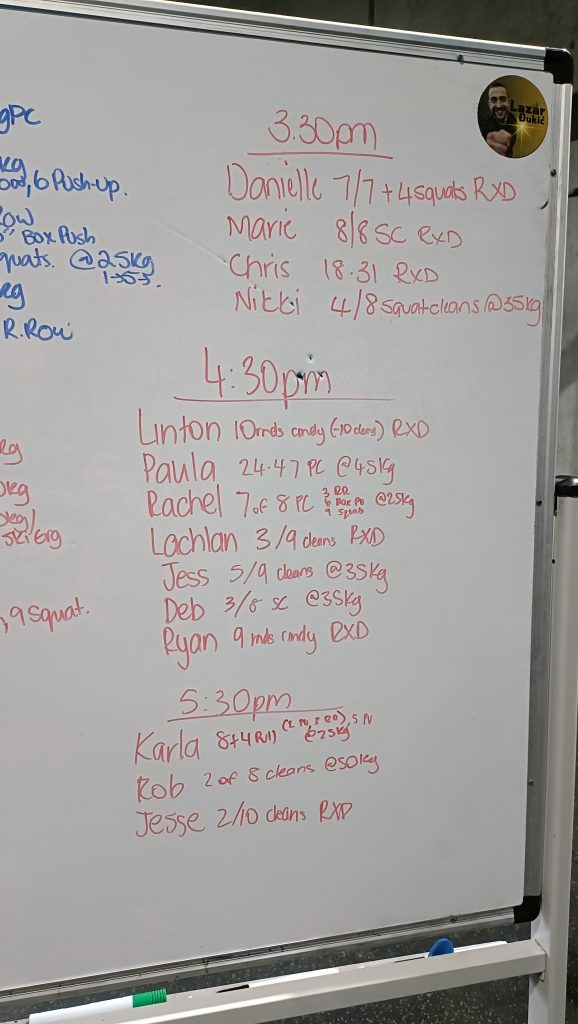 gPC
kg
6 Push-up.
Row
Box Push
quats. @25kg
1→5→.
kg
R. Row
kg
kg
kg/
ski erg
, 9 squat.
Lazar
Đukić
3.30pm
Danielle 7/7 + 4 squats RXD
Marie 8/8 SC RXD
Chris 18.31 RXD
Nikki 4/8 squat cleans @35kg
4:30pm
Linton 10 rnds cindy (-10 cleans) RXD
Paula 24.47 PC @45kg
Rachel 7 of 8 PC 3 RR 6 Box PU 9 squats @25kg
Lachlan 3/9 cleans RXD
Jess 5/9 cleans @35kg
Deb 3/8 SC @35kg
Ryan 9 rnds cindy RXD
5:30pm
Karla 8+4 (2 PU, 3 RR), 5 PU @25kg
Rob 2 of 8 cleans @50kg
Jesse 2/10 cleans RXD